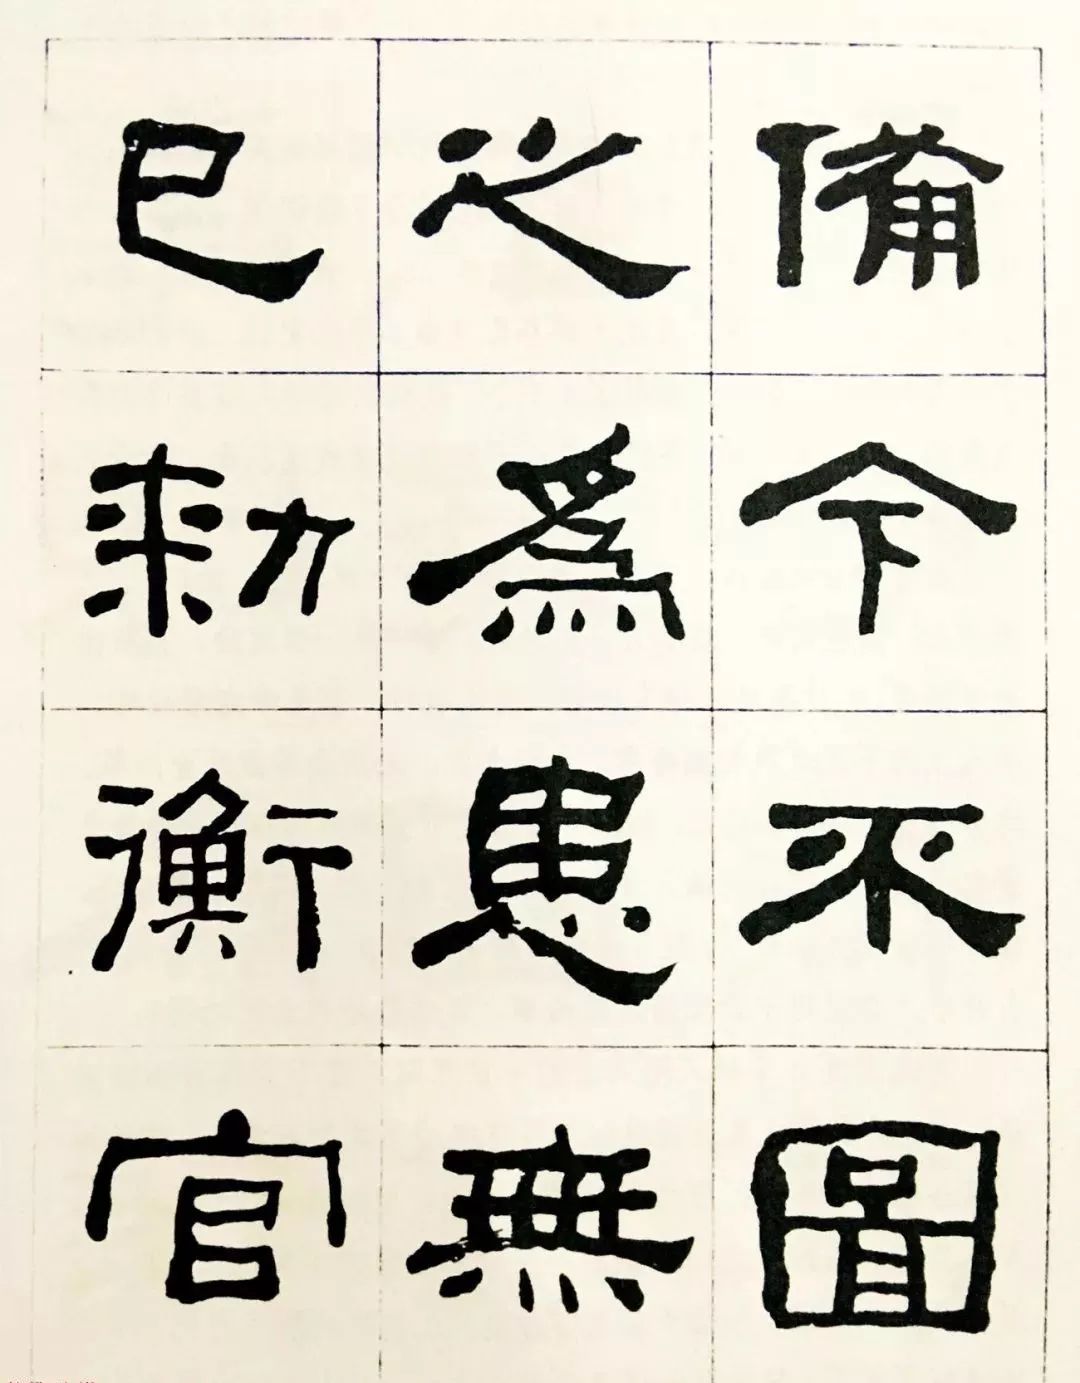 備今不圖
之爲患無
已勑衡官